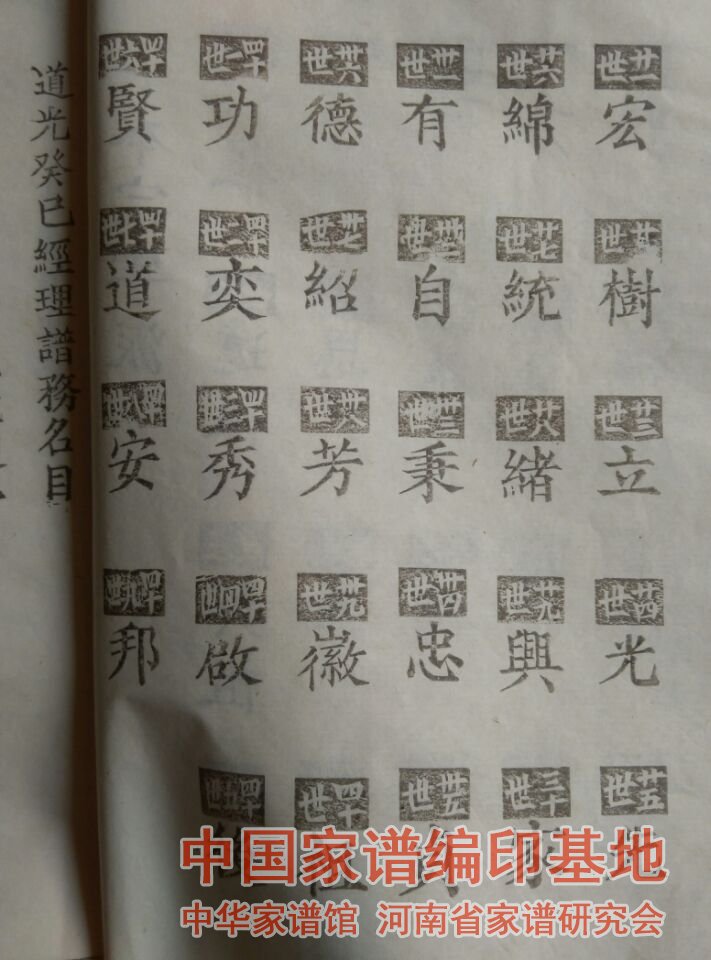 廿一世
宏
廿二世
樹
廿三世
立
廿四世
光
廿五世
廿六世
綿
廿七世
統
廿八世
緒
廿九世
興
三十世
家
卅一世
有
卅二世
自
卅三世
秉
卅四世
忠
卅五世
卅六世
德
卅七世
紹
卅八世
芳
卅九世
徽
四十世
四十一世
功
四十二世
奕
四十三世
秀
四十四世
啟
四十五世
四十六世
賢
四十七世
道
四十八世
安
四十九世
邦
道光癸巳經理譜務名目
中国家谱编印基地
中华家谱馆 河南省家谱研究会